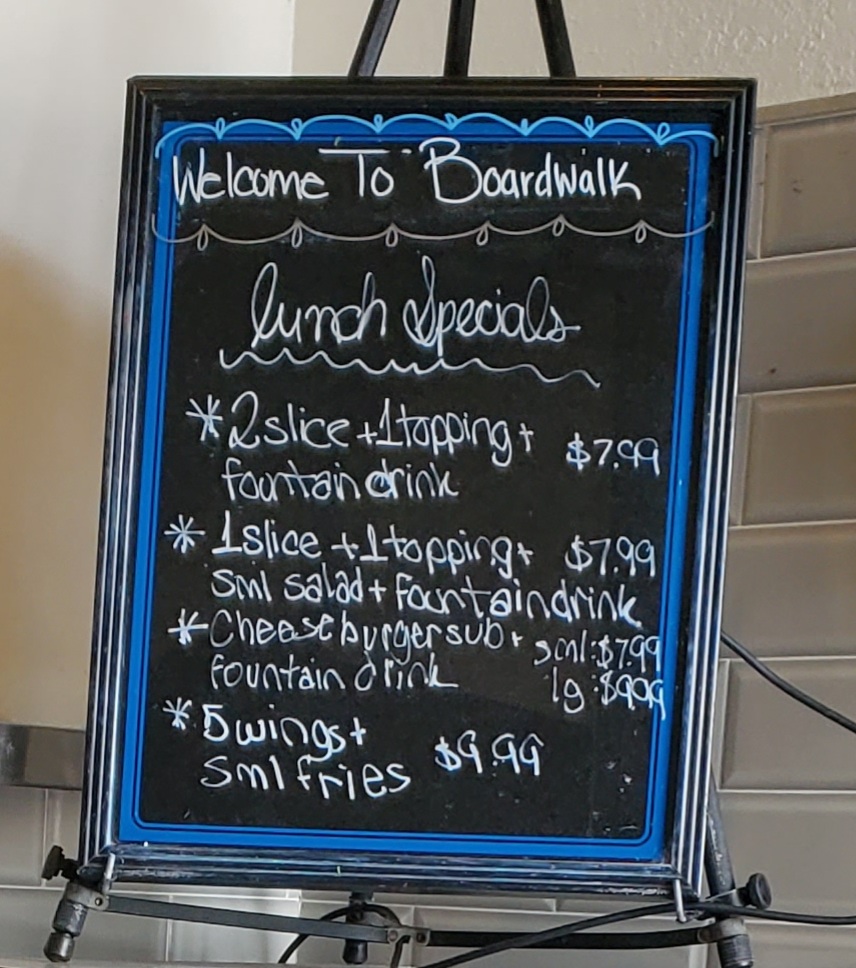 Welcome To Boardwalk
lunch Specials
* 2 slice + 1 topping + $7.99
fountain drink
* 1 slice + 1 topping + $7.99
sml salad + fountain drink
* Cheeseburger sub + sml: $7.99
fountain drink lg: $9.99
* 5 wings + $9.99
sml fries